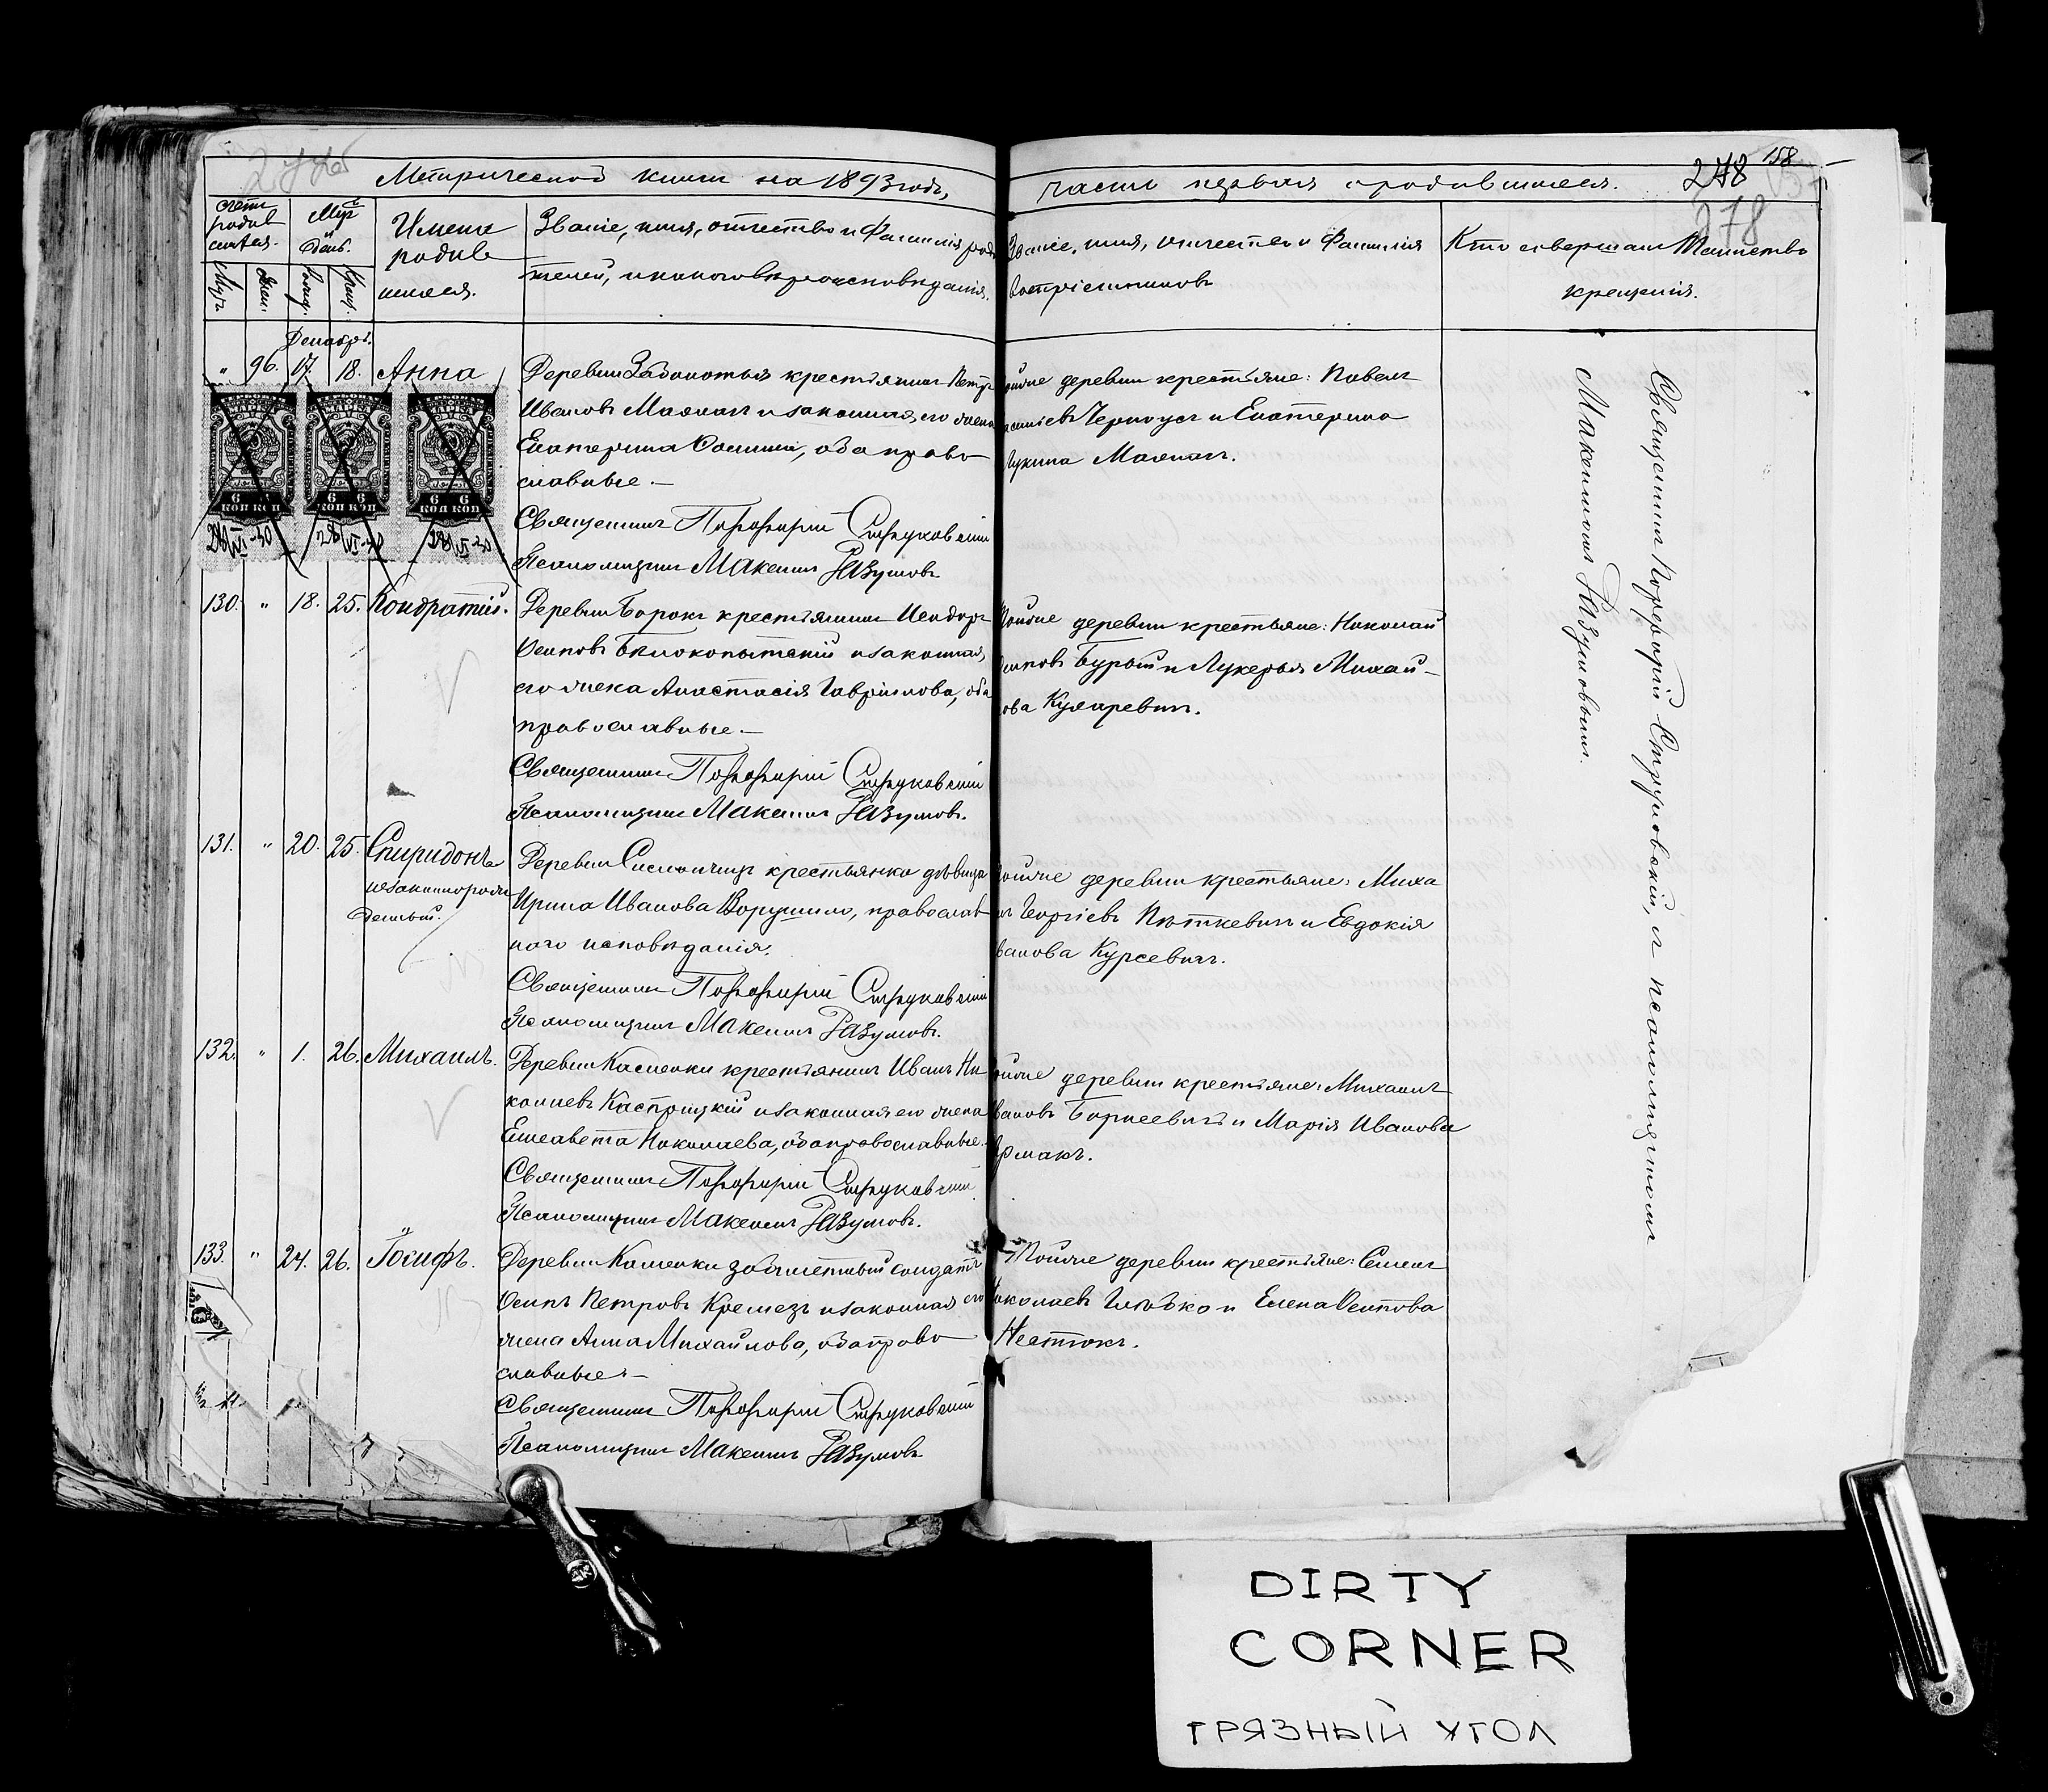 Метрической книги на 1893 годъ,
части первая о родившихся.
278
158
278
Счетъ родив шихся.
Мѣс. и День.
Имена родив шихся.
Званіе, имя, отчество и Фамилія роди
телей, и какого вѣроисповѣданія.
Званіе, имя, отчество и Фамилія
воспріемниковъ
Кто совершалъ Таинство
крещенія.
Муж.
Жен.
Рожд.
Крещ.
Декабрь.
" 96. 17. 18. Анна
Деревни Заболотья крестьянинъ Петръ
Ивановъ Маянъ и законная его жена
Екатерина, оба право
славные. —
Священникъ Порфирій Струковскій
Псаломщикъ Максимъ Разумовъ
деревни крестьяне: Павелъ
Черноусъ и Екатерина
Лукина
6 6
КОП КОП
6 6
КОП КОП
6 6
КОП КОП
130. " 18. 25. Кондратій.
Деревни Борокъ крестьянинъ Исидоръ
Осиповъ Бѣлокопытскій и законная
его жена Анастасія Гаврилова, оба
православные. —
Священникъ Порфирій Струковскій
Псаломщикъ Максимъ Разумовъ.
Тойже деревни крестьяне: Николай
Осиповъ Бурый и Лукерья Михай-
лова
131. " 20. 25. Спиридонъ
незаконнорож
денный.
Деревни крестьянка дѣвица
Ирина Иванова Ворушило, православ
наго исповѣданія.
Священникъ Порфирій Струковскій
Псаломщикъ Максимъ Разумовъ.
Тойже деревни крестьяне: Миха
илъ Георгіевъ Пѣткевичъ и Евдокія
Иванова Курсевичъ.
132. " 1. 26. Михаилъ.
Деревни Касценки крестьянинъ Иванъ Ни
колаевъ Касприцкій и законная его жена
Елисавета Николаева, оба православные.
Священникъ Порфирій Струковскій
Псаломщикъ Максимъ Разумовъ.
Тойже деревни крестьяне: Михаилъ
Ивановъ Борисевичъ и Марія Иванова
Ермакъ.
133. " 24. 26. Іосифъ.
Деревни Касценки солдатъ
Осипъ Петровъ Кремезъ и законная его
жена Анна Михайлова, оба право
славные. —
Священникъ Порфирій Струковскій
Псаломщикъ Максимъ Разумовъ
Тойже деревни крестьяне: Семенъ
Николаевъ и Елена Осипова
Нестюкъ.
Священникъ Порфирій Струковскій, съ псаломщикомъ
Максимомъ Разумовымъ.
DIRTY
CORNER
ГРЯЗНЫЙ УГОЛ